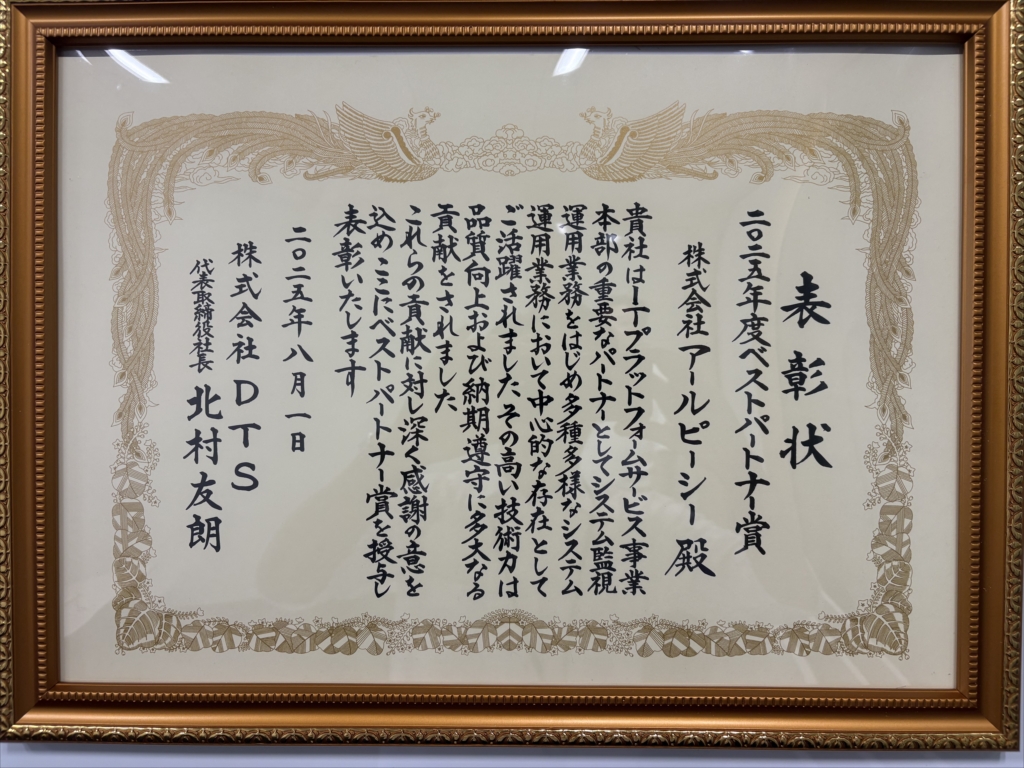 表彰状
二〇二五年度ベストパートナー賞
株式会社アールピーシー 殿
貴社はITプラットフォームサービス事業
本部の重要なパートナーとしてシステム監視
運用業務をはじめ多種多様なシステム
運用業務において中心的な存在として
ご活躍されました その高い技術力は
品質向上および納期遵守に多大なる
貢献をされました
これらの貢献に対し深く感謝の意を
込めここにベストパートナー賞を授与し
表彰いたします
二〇二五年八月一日
株式会社DTS
代表取締役社長 北村友朗